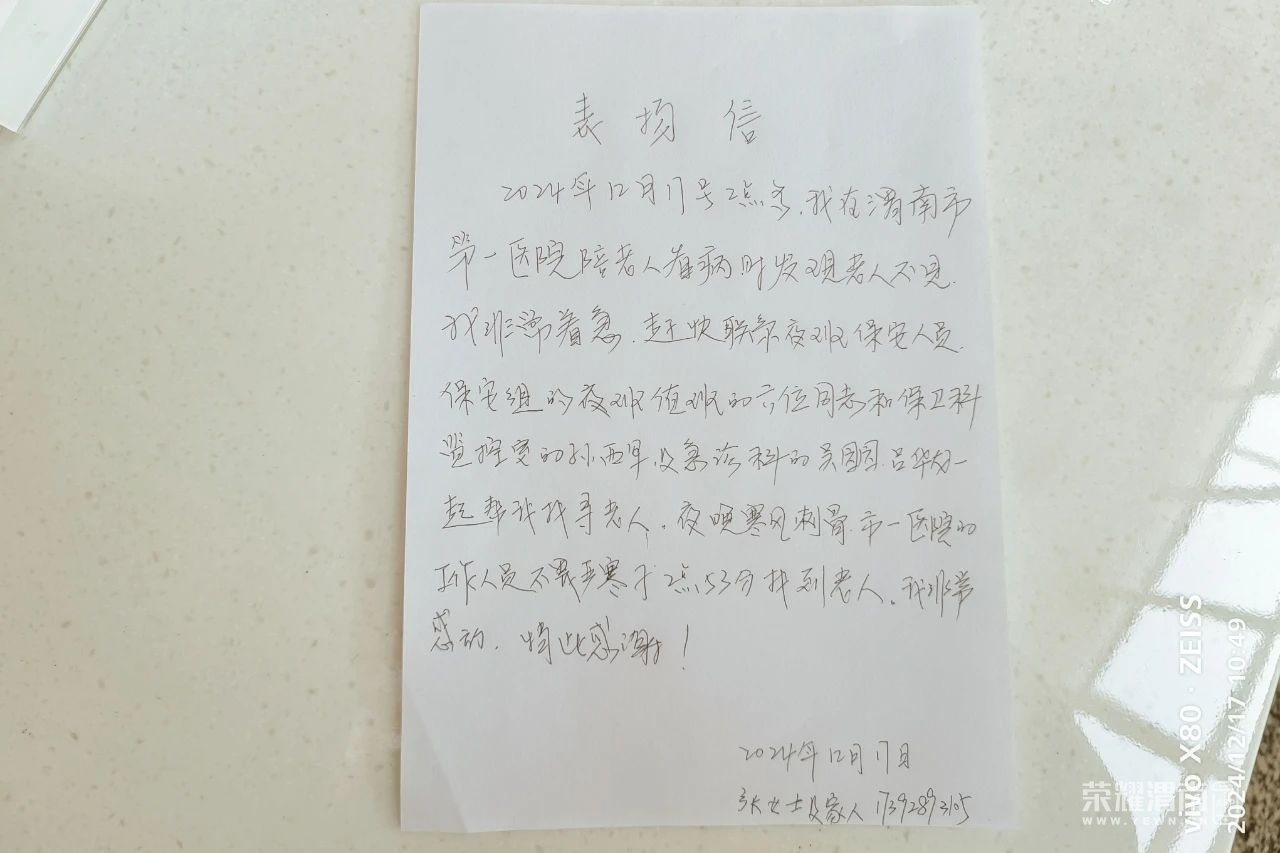 表扬信
2024年12月17号2点多,我在渭南市
第一医院陪老人看病时发现老人不见.
我非常着急.赶快联系夜班保安人员.
保安组的夜班值班的六位同志和保卫科
监控室的孙西军及急诊科的吴团团.吕华龙一
起帮我找寻老人,夜晚寒风刺骨.市一医院的
工作人员不畏严寒于2点53分找到老人。我非常
感动.特此感谢!
2024年12月17日
张女士及家人 17392893105
vivo X80 · ZEISS
2024/12/17 10:49
荣耀渭南